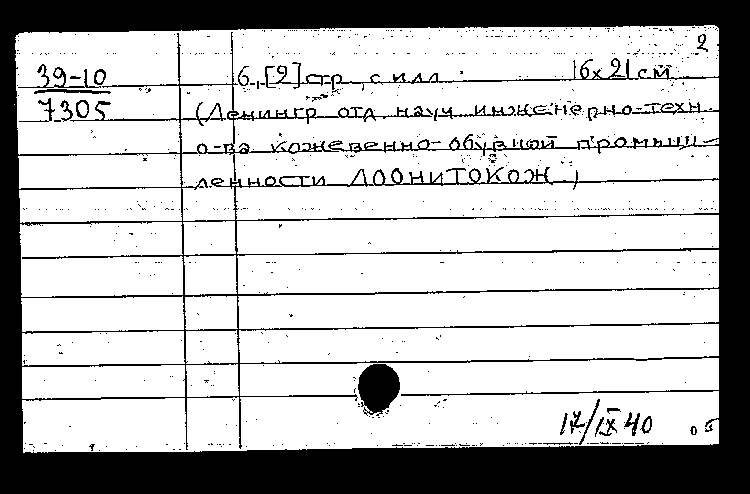 2
39-10
7305
6, [2] стр, с илл. 16х21 см
(Ленингр отд науч инженерно-техн.
о-ва кожевенно-обувной промыш-
ленности ЛООНИТОКОЖ)
17/IX 40